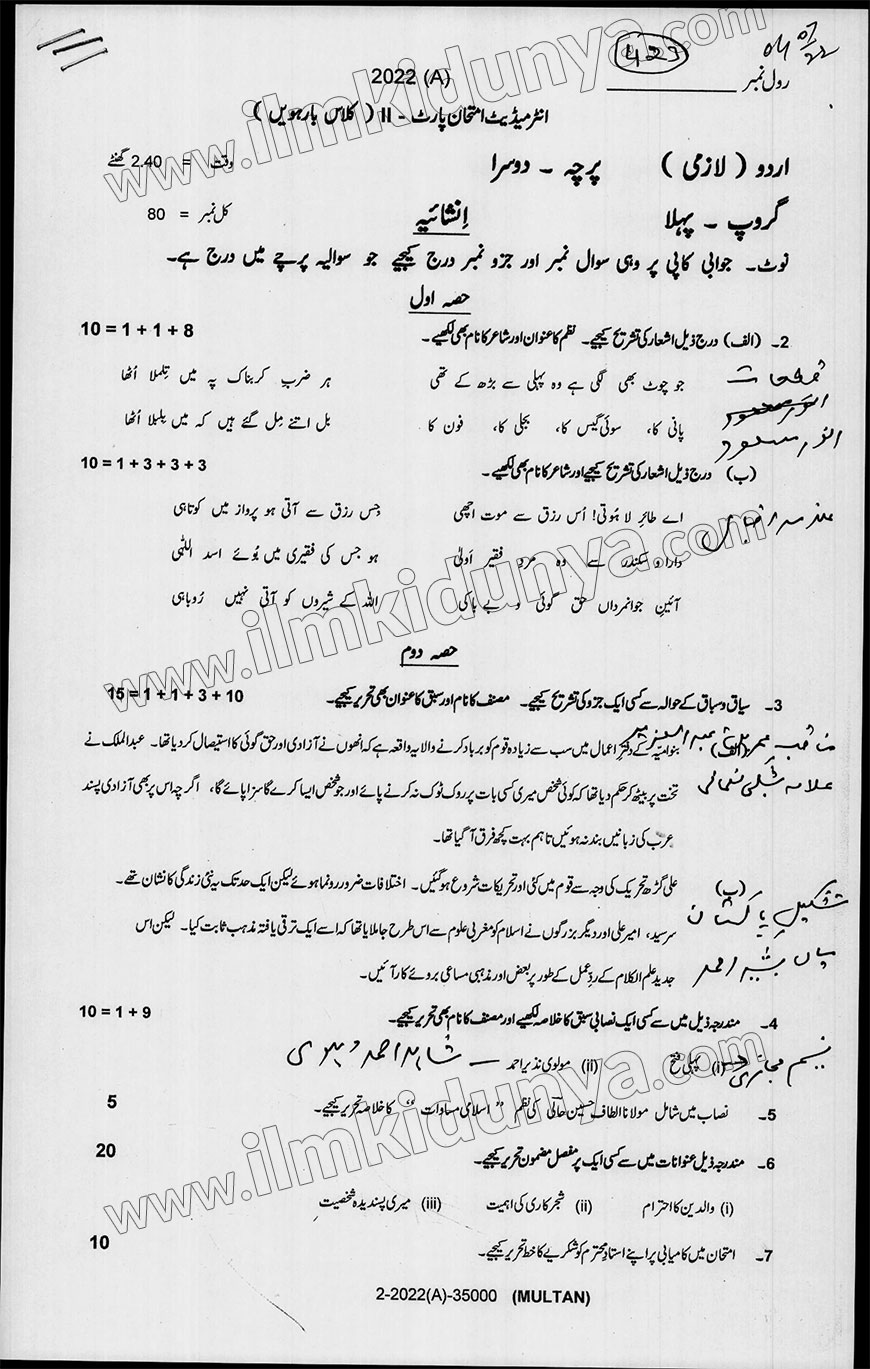 423
04 07/22
رول نمبر
2022 (A)
انٹرمیڈیٹ امتحان پارٹ - II ( کلاس بارھویں )
اردو ( لازمی ) پرچہ - دوسرا وقت = 2.40 گھنٹے
گروپ - پہلا اِنشائیہ کل نمبر = 80
نوٹ۔ جوابی کاپی پر وہی سوال نمبر اور جزو نمبر درج کیجیے جو سوالیہ پرچے میں درج ہے۔
حصہ اول
2۔ (الف) درج ذیل اشعار کی تشریح کیجیے۔ نظم کا عنوان اور شاعر کا نام بھی لکھیے۔ 10 = 1 + 1 + 8
جو چوٹ بھی لگی ہے وہ پہلی سے بڑھ کے تھی ہر ضربِ کربناک پہ میں تِلملا اُٹھا
پانی کا، سوئی گیس کا، بجلی کا، فون کا بل اتنے مِل گئے ہیں کہ میں بِلبلا اُٹھا
انور مسعود
(ب) درج ذیل اشعار کی تشریح کیجیے اور شاعر کا نام بھی لکھیے۔ 10 = 1 + 3 + 3 + 3
اے طائرِ لاہُوتی! اُس رزق سے موت اچھی جس رزق سے آتی ہو پرواز میں کوتاہی
دارا و سکندر سے وہ مردِ فقیر اَولیٰ ہو جس کی فقیری میں بُوئے اسد اللّٰہی
آئینِ جوانمرداں حق گوئی و بے باکی اللہ کے شیروں کو آتی نہیں رُوباہی
حصہ دوم
3۔ سیاق و سباق کے حوالہ سے کسی ایک جزو کی تشریح کیجیے۔ مصنف کا نام اور سبق کا عنوان بھی تحریر کیجیے۔ 15 = 1 + 1 + 3 + 10
مناقب عمر بن عبدالعزیز
علامہ شبلی نعمانی
(الف) بنوامیّہ کے دفترِ اعمال میں سب سے زیادہ قوم کو برباد کرنے والا یہ واقعہ ہے کہ انھوں نے آزادی اور حق گوئی کا استیصال کر دیا تھا۔ عبدالملک نے
تخت پر بیٹھ کر حکم دیا تھا کہ کوئی شخص میری کسی بات پر روک ٹوک نہ کرنے پائے اور جو شخص ایسا کرے گا سزا پائے گا، اگرچہ اس پر بھی آزادی پسند
عرب کی زبانیں بند نہ ہوئیں تاہم بہت کچھ فرق آ گیا تھا۔
تشکیلِ پاکستان
میاں بشیر احمد
(ب) علی گڑھ تحریک کی وجہ سے قوم میں کئی اور تحریکات شروع ہو گئیں۔ اختلافات ضرور رونما ہوئے لیکن ایک حد تک یہ نئی زندگی کا نشان تھے۔
سرسید، امیر علی اور دیگر بزرگوں نے اسلام کو مغربی علوم سے اس طرح جا ملایا تھا کہ اسے ایک ترقی یافتہ مذہب ثابت کیا۔ لیکن اس
جدید علم الکلام کے ردِّ عمل کے طور پر بعض اور مذہبی مساعی بروئے کار آئیں۔
4۔ مندرجہ ذیل میں سے کسی ایک نصابی سبق کا خلاصہ لکھیے اور مصنف کا نام بھی تحریر کیجیے۔ 10 = 1 + 9
نسیم حجازی (i) پہلی فتح (ii) مولوی نذیر احمد — شاہد احمد دہلوی
5۔ نصاب میں شامل مولانا الطاف حسین حالؔی کی نظم ”اسلامی مساوات“ کا خلاصہ تحریر کیجیے۔ 5
6۔ مندرجہ ذیل عنوانات میں سے کسی ایک پر مفصل مضمون تحریر کیجیے۔ 20
(i) والدین کا احترام (ii) شجرکاری کی اہمیت (iii) میری پسندیدہ شخصیت
7۔ امتحان میں کامیابی پر اپنے استادِ محترم کو شکریے کا خط تحریر کیجیے۔ 10
2-2022(A)-35000 (MULTAN)
www.ilmkidunya.com
www.ilmkidunya.com
www.ilmkidunya.com
www.ilmkidunya.com